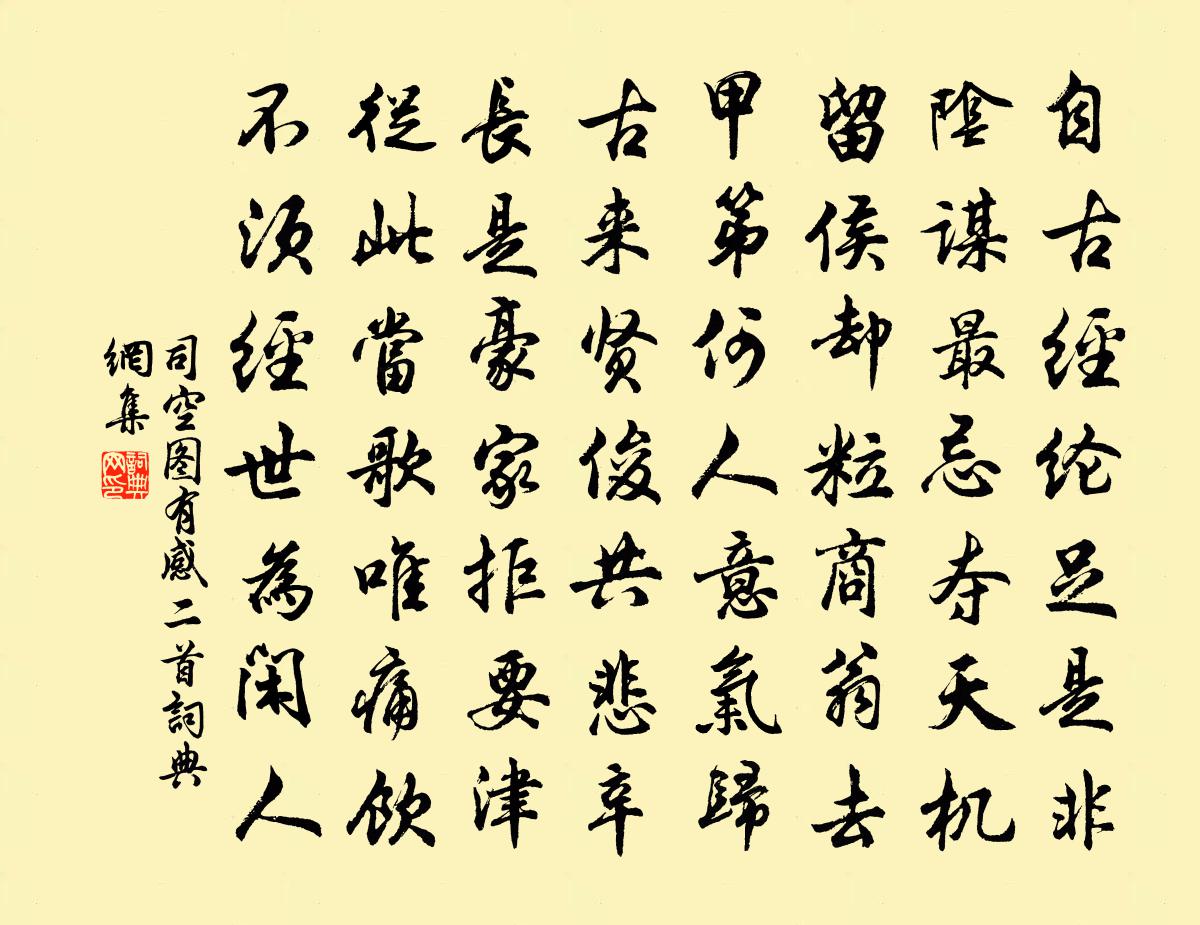 自古經纶足是非
陰谋最忌夺天机
留侯却粒商翁去
甲第何人意氣歸
古来贤俊共悲辛
長是豪家拒要津
從此當歌唯痛饮
不须經世為闲人
司空图有感二首詞典
網集
詞典网印